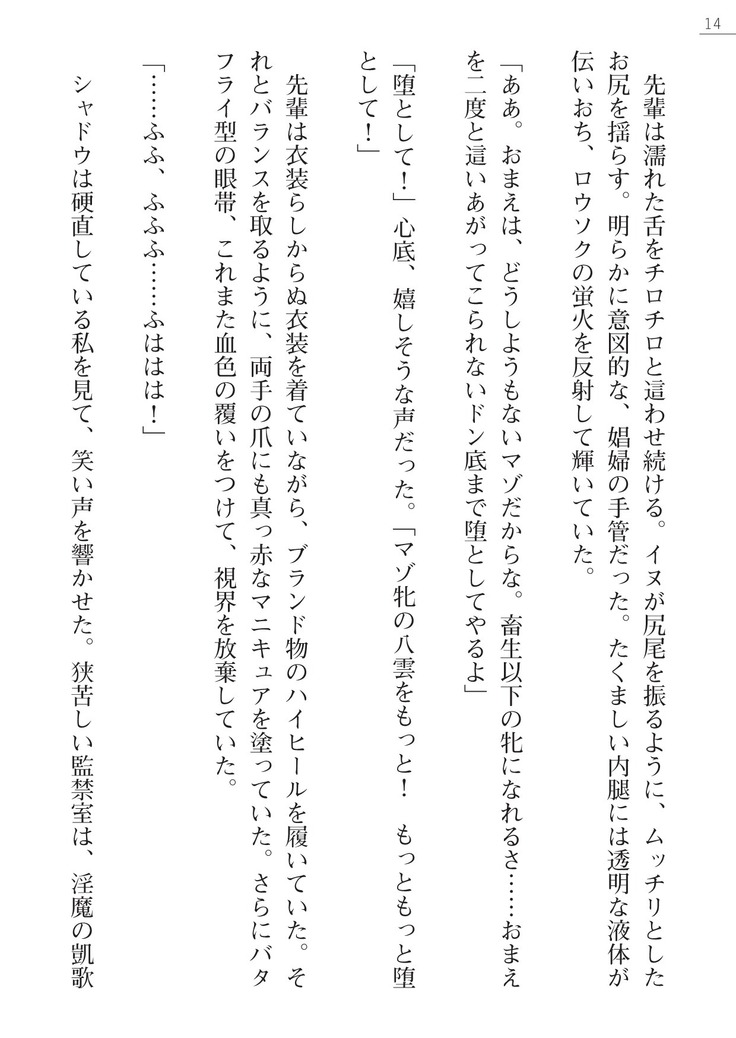 14
先輩は濡れた舌をチロチロと這わせ続ける。イヌが尻尾を振るように、ムッチリとした
お尻を揺らす。明らかに意図的な、娼婦の手管だった。たくましい内腿には透明な液体が
伝いおち、ロウソクの蛍火を反射して輝いていた。
「ああ。おまえは、どうしようもないマゾだからな。畜生以下の牝になれるさ……おまえ
を二度と這いあがってこられないドン底まで堕としてやるよ」
「堕として！」心底、嬉しそうな声だった。「マゾ牝の八雲をもっと！　もっともっと堕
として！」
先輩は衣装らしからぬ衣装を着ていながら、ブランド物のハイヒールを履いていた。そ
れとバランスを取るように、両手の爪にも真っ赤なマニキュアを塗っていた。さらにバタ
フライ型の眼帯、これまた血色の覆いをつけて、視界を放棄していた。
「……ふふ、ふふふ……ふははは！」
シャドウは硬直している私を見て、笑い声を響かせた。狭苦しい監禁室は、淫魔の凱歌